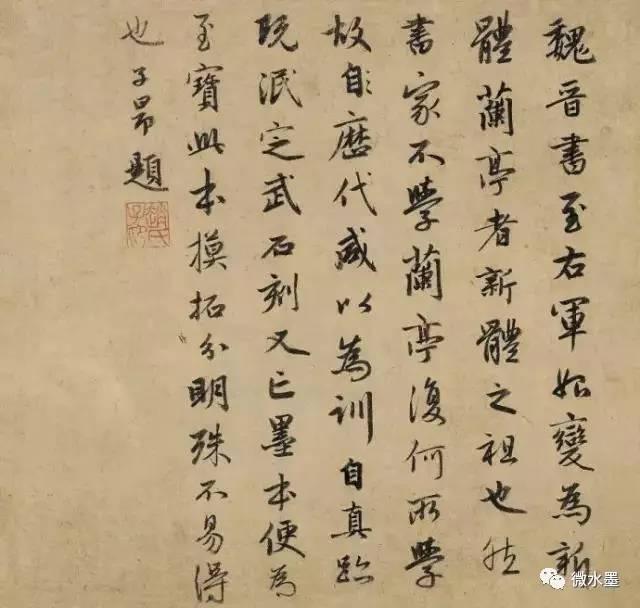 魏晉書至右軍始變為新
體蘭亭者新體之祖也然
書家不學蘭亭復何所學
故自歷代咸以為訓自真跡
既泯定武石刻又亡墨本便為
至寶此本摸拓分明殊不易得
也子昂題
趙氏子昂
微水墨